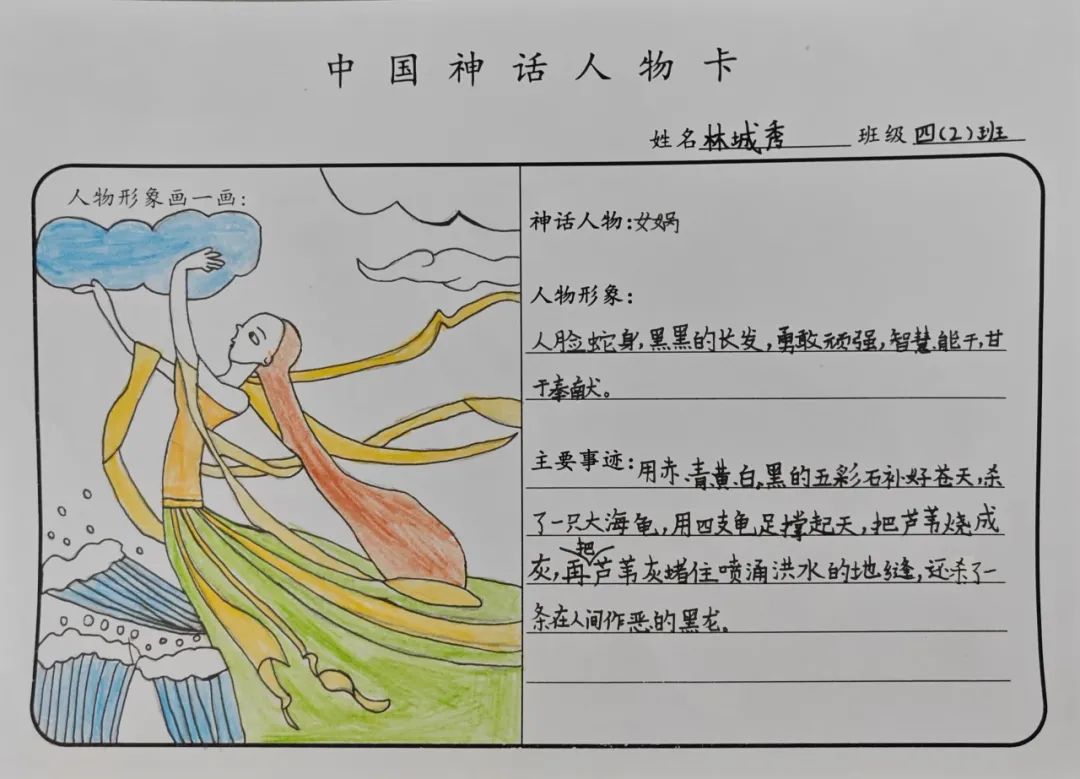 中国神话人物卡
姓名林城秀 班级四(2)班
人物形象画一画:
神话人物:女娲
人物形象:
人脸蛇身,黑黑的长发,勇敢顽强,智慧能干,甘
于奉献。
主要事迹:用赤、青、黄、白、黑的五彩石补好苍天,杀
了一只大海龟,用四支龟足撑起天,把芦苇烧成
灰,再把芦苇灰堵住喷涌洪水的地缝,还杀了一
条在人间作恶的黑龙。